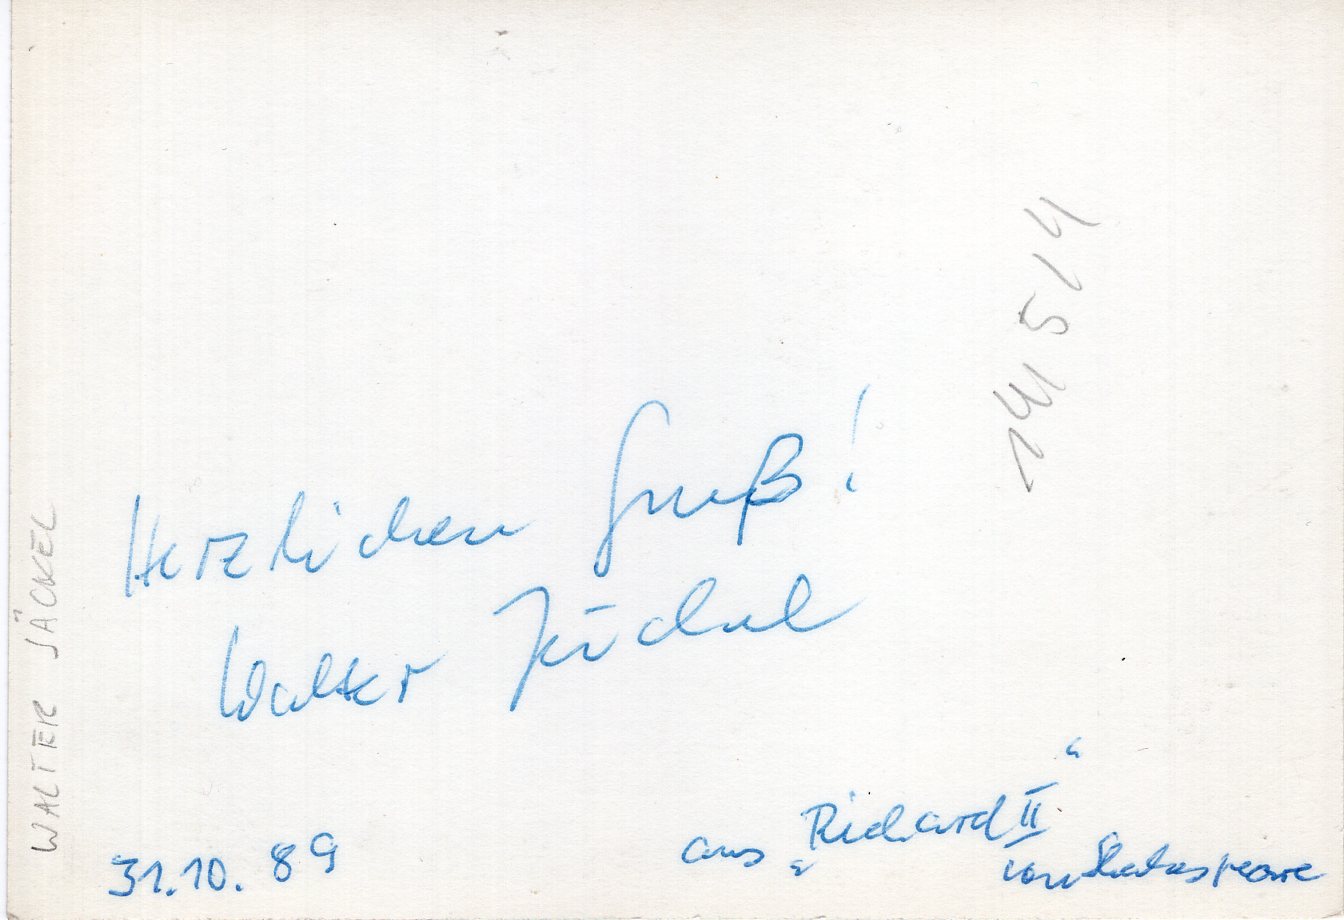 Herzlichen Gruß!
Walter Jäckel
31.10.89
aus „Richard II“
von Shakespeare
WALTER JÄCKEL
141514